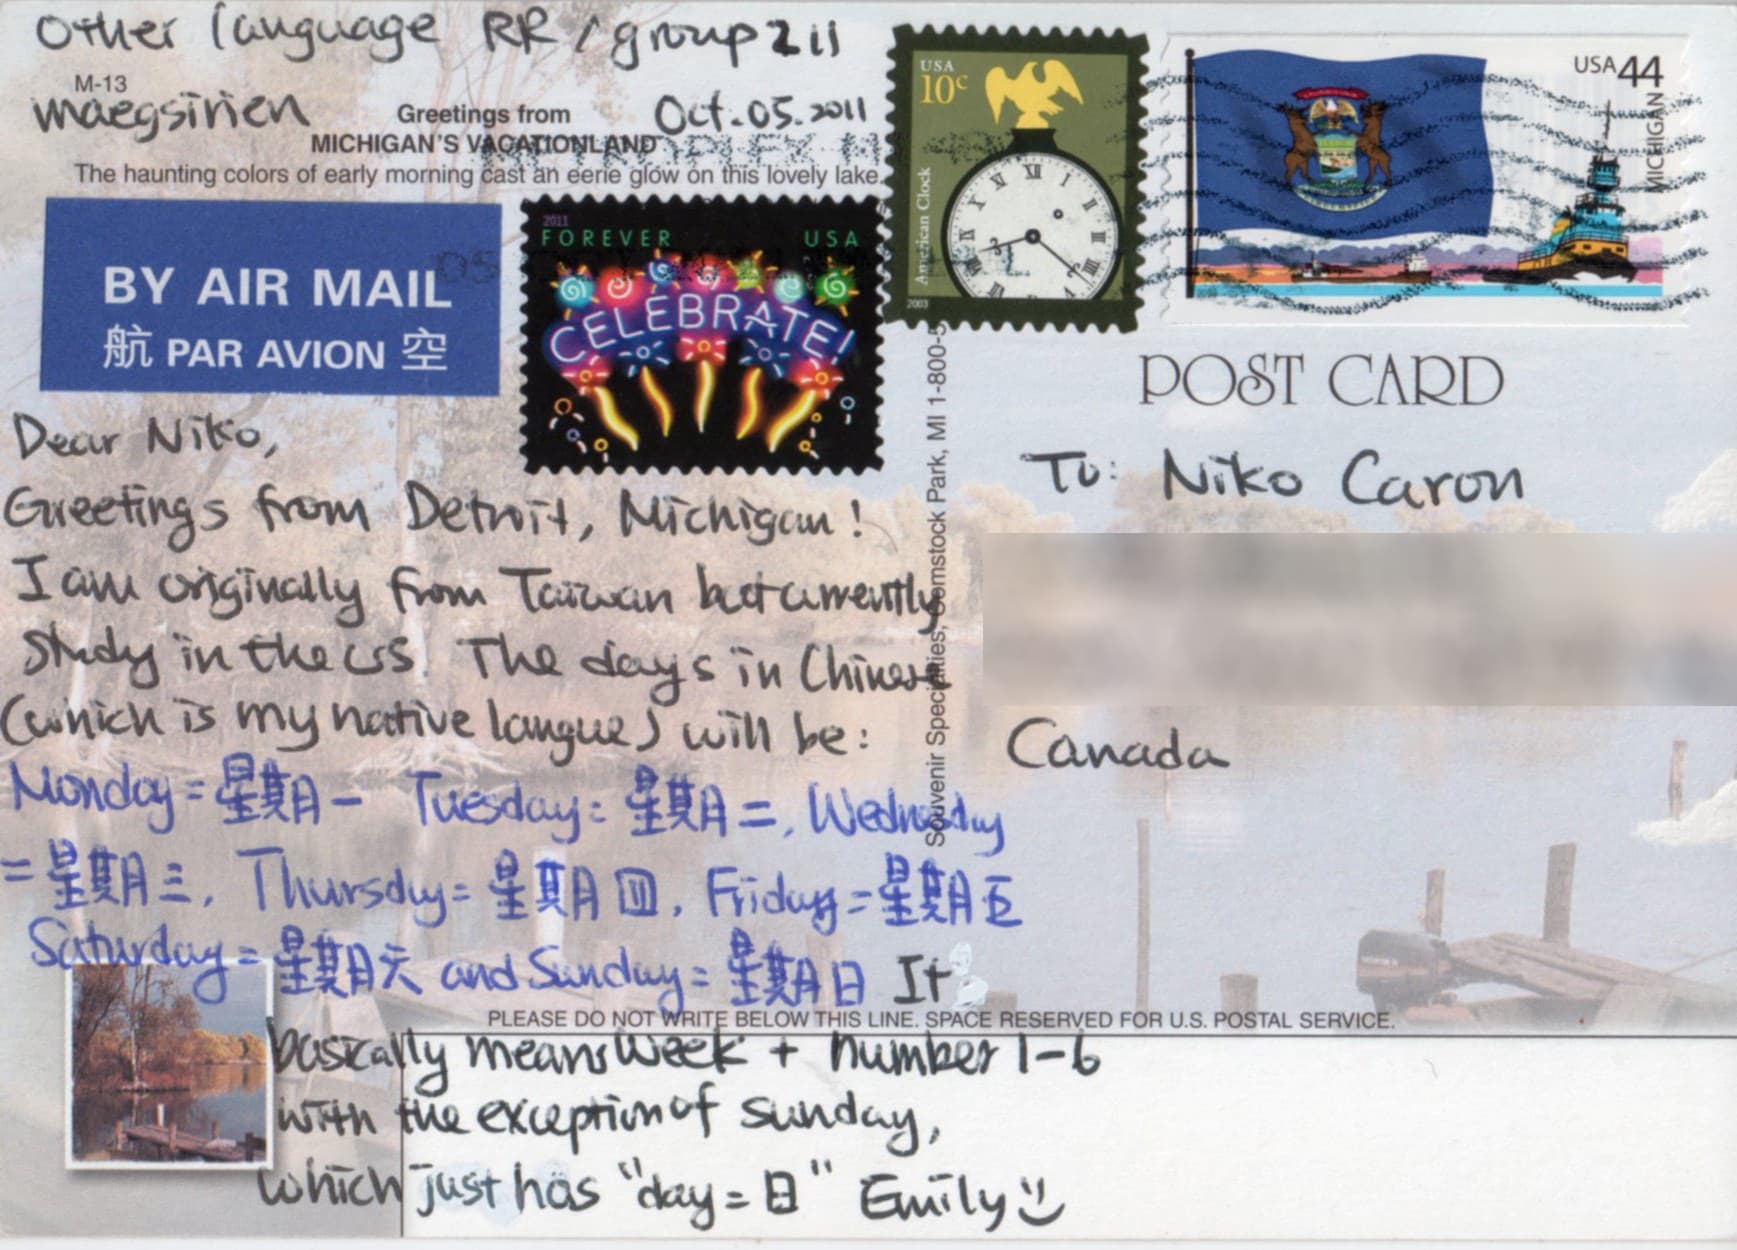 Other language RR / group 211
M-13
maegsirien
Greetings from
Oct. 05. 2011
MICHIGAN'S VACATIONLAND
The haunting colors of early morning cast an eerie glow on this lovely lake.
BY AIR MAIL
航 PAR AVION 空
2011
FOREVER USA
CELEBRATE!
USA
10c
American Clock
2003
USA 44
MICHIGAN
POST CARD
Dear Niko,
Greetings from Detroit, Michigan!
I am originally from Taiwan but currently
study in the US. The days in Chinese
(which is my native langue) will be:
Monday = 星期一 Tuesday = 星期二, Wednesday
= 星期三, Thursday = 星期四, Friday = 星期五
Saturday = 星期六 and Sunday = 星期日 It
basically means Week + number 1-6
with the exception of Sunday,
which just has "day = 日" Emily
To: Niko Caron
Canada
Souvenir Specialties, Comstock Park, MI 1-800-5
PLEASE DO NOT WRITE BELOW THIS LINE. SPACE RESERVED FOR U.S. POSTAL SERVICE.